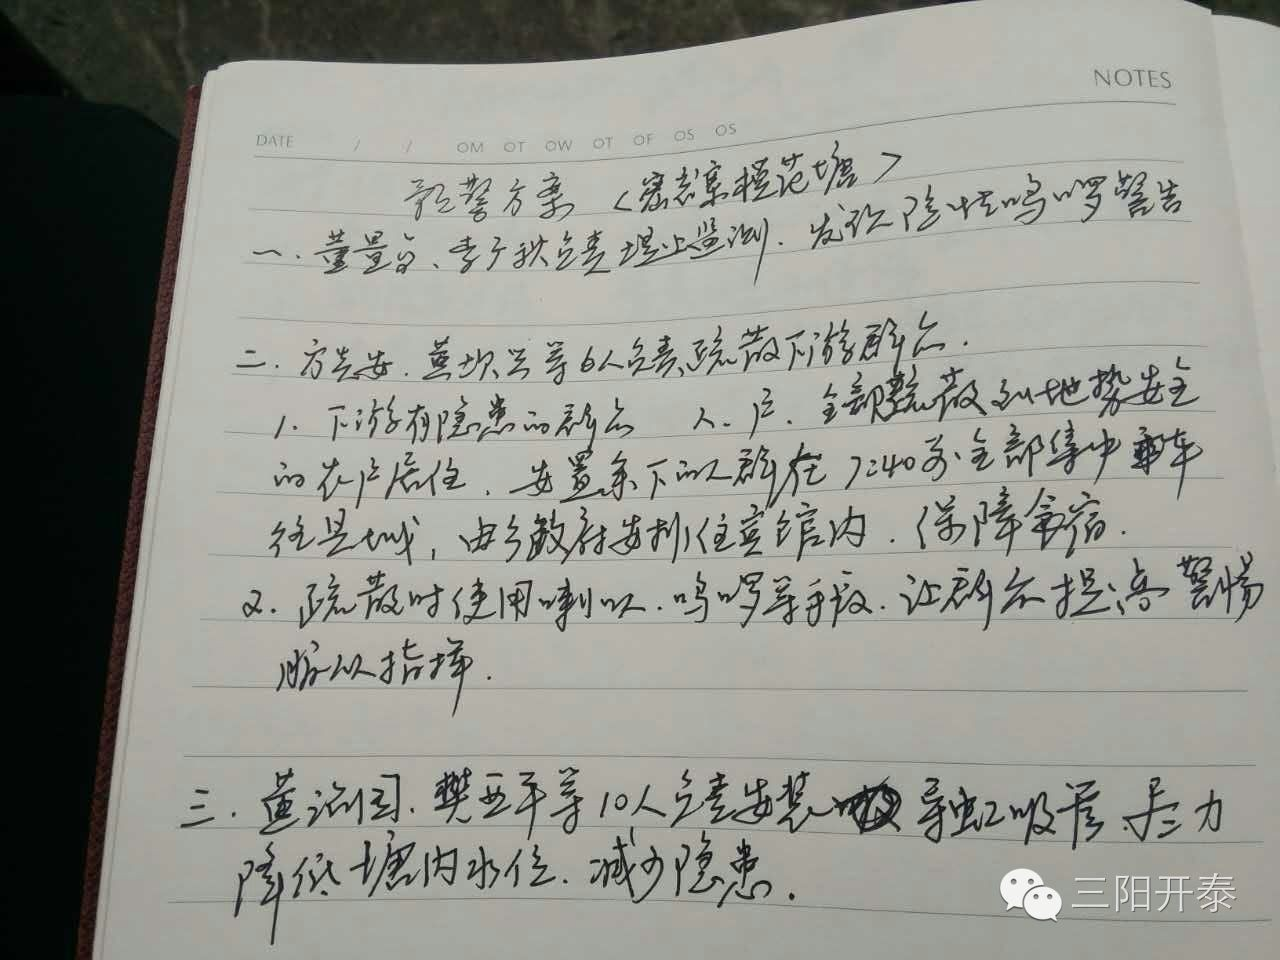 NOTES
DATE / / OM OT OW OT OF OS OS
预警方案
一.董量,李负责堤上监测.发现险情鸣啰警告
二.方先安.黄坎兰等6人负责疏散下游群众.
1.下游有隐患的群众 人.户.全部疏散到地势安全
的农户居住.安置余下的人群在7:40前全部集中乘车
往县城,由乡政府安排住宾馆内.保障食宿.
2.疏散时使用喇叭.鸣啰等手段.让群众提高警惕
服从指挥.
三.黄润国.樊亚平等10人负责安装导虹吸管.尽力
降低塘内水位.减少隐患.
三阳开泰